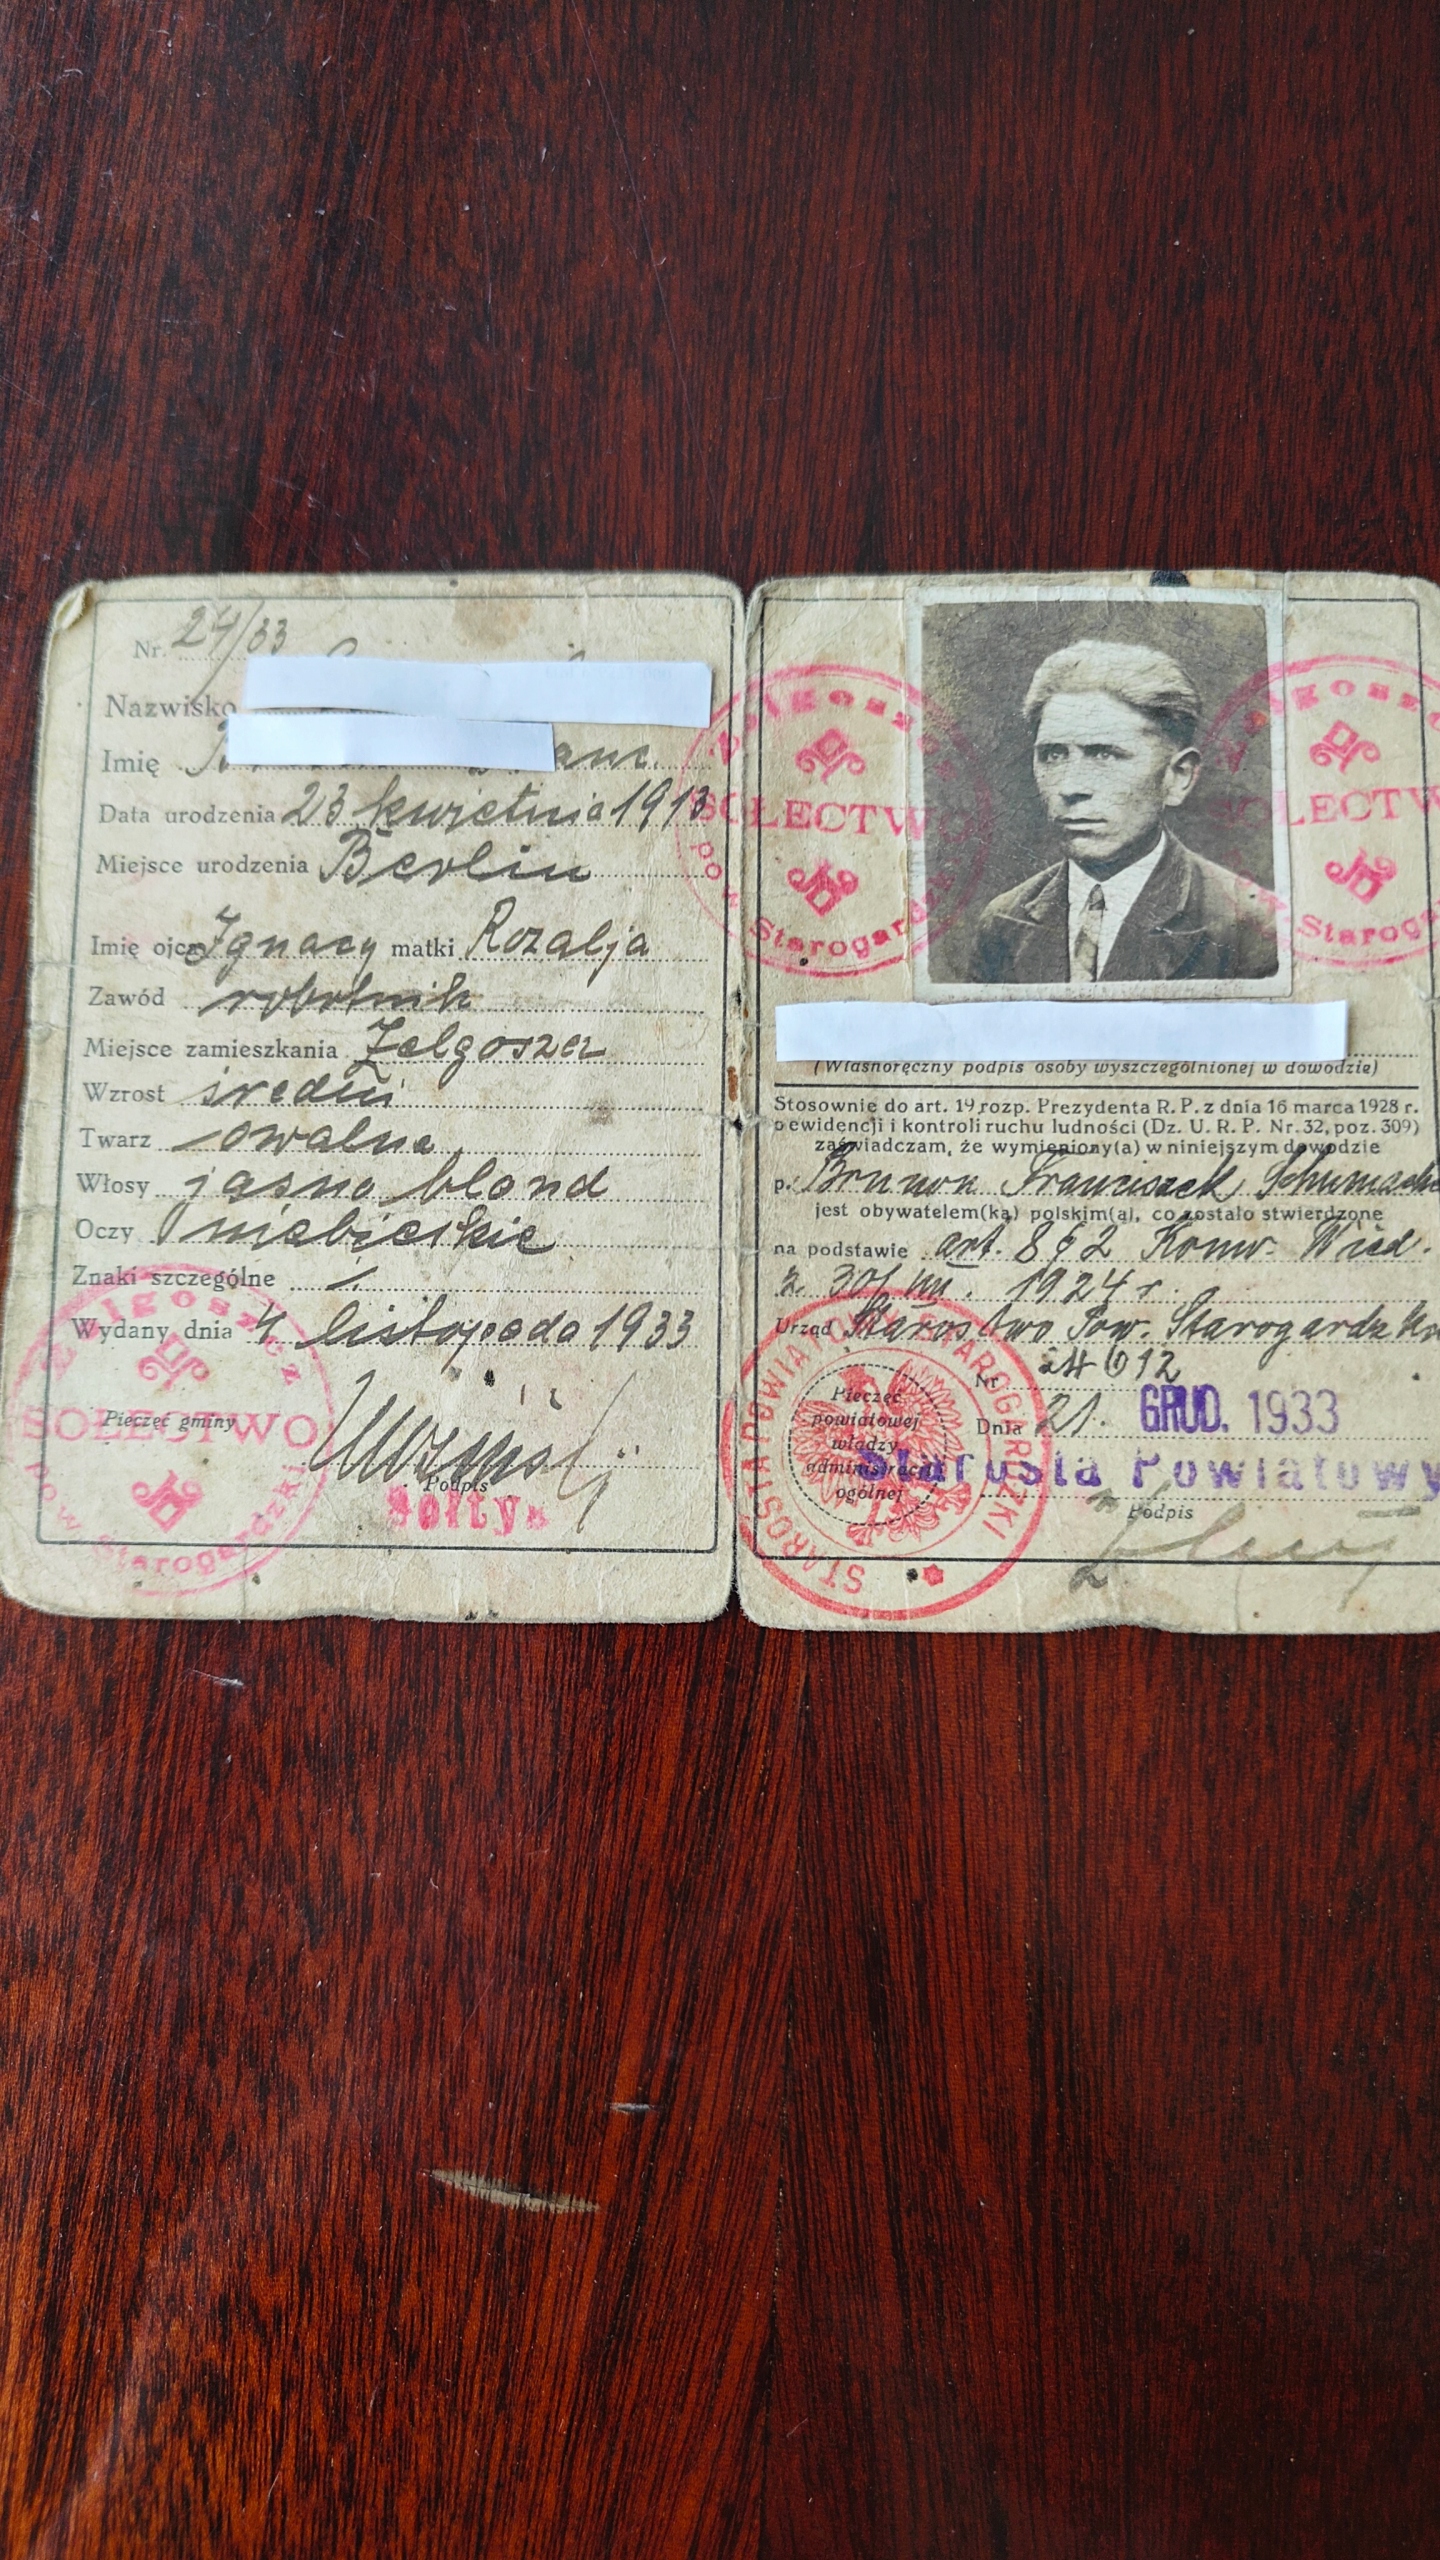 Nr. 24/33
Nazwisko
Imię
Data urodzenia 23 kwietnia 1913
Miejsce urodzenia Berlin
Imię ojca Ignacy matki Rozalja
Zawód robotnik
Miejsce zamieszkania Zelgoszcz
Wzrost średni
Twarz owalna
Włosy jasno blond
Oczy niebieskie
Znaki szczególne
Wydany dnia 4 listopada 1933
Pieczęć gminy
Podpis
Sołtys
Zelgoszcz
SOŁECTWO
pow. Starogardzki
Zelgoszcz
SOŁECTWO
pow. Starogardzki
Zelgoszcz
SOŁECTW
Starog
(Własnoręczny podpis osoby wyszczególnionej w dowodzie)
Stosownie do art. 19 rozp. Prezydenta R. P. z dnia 16 marca 1928 r.
o ewidencji i kontroli ruchu ludności (Dz. U. R. P. Nr. 32, poz. 309)
zaświadczam, że wymieniony(a) w niniejszym dowodzie
p. Brunon Franciszek Schumache
jest obywatelem(ką) polskim(ą), co zostało stwierdzone
na podstawie art. 8 § 2 Konw. Wied.
z 30/VIII. 1924 r.
Urząd Starostwo Pow. Starogardzki
Nr 24612
Dnia 21. GRUD. 1933
Starosta Powiatowy
Podpis
Pieczęć
powiatowej
władzy
administracji
ogólnej
STAROSTA POWIATOWY STAROGARDZKI